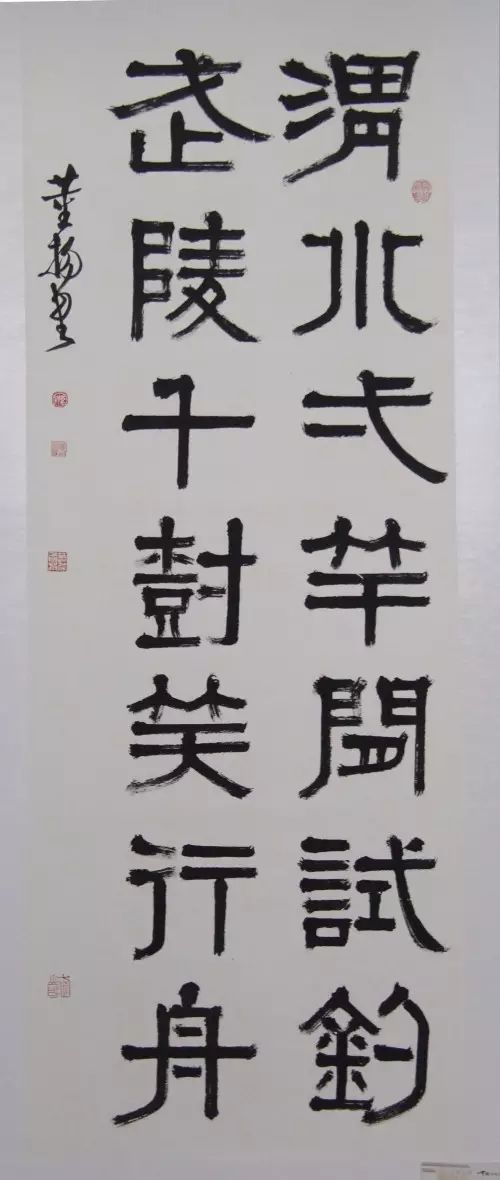 渭水弌竿閒試釣
武陵千樹笑行舟
董書